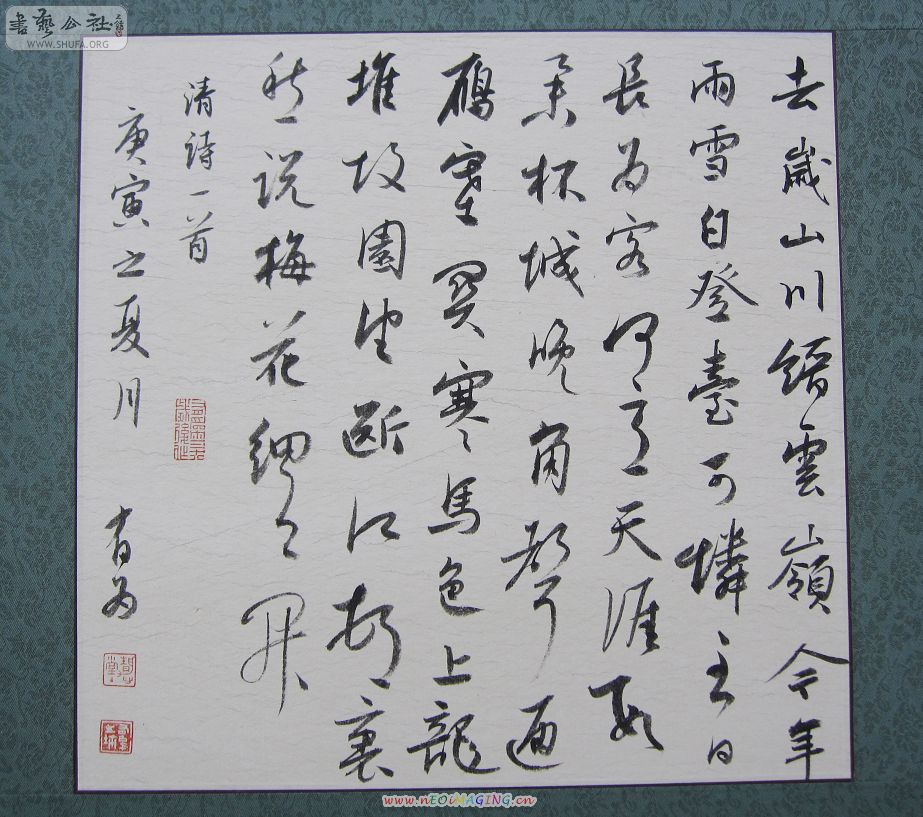 去歲山川縉雲嶺今年
雨雪白登臺可憐至日
長為客何意天涯數
舉杯城晚角聲通
鴈塞關寒馬色上龍
堆故園望斷江村裏
愁說梅花細々開
清詩一首
庚寅之夏月
书艺公社
WWW.SHUFA.ORG
www.nEOiMAGING.cn